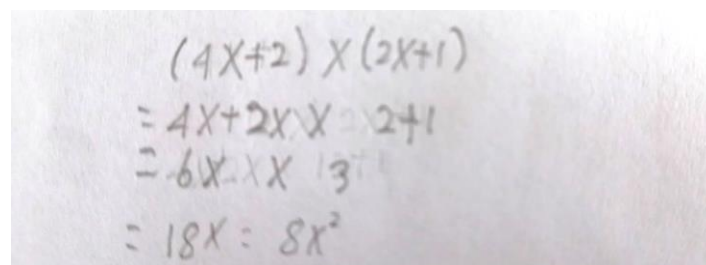 (4x+2) × (2x+1)
= 4x+2x × 2+1
= 6x × 3
= 18x = 8x²